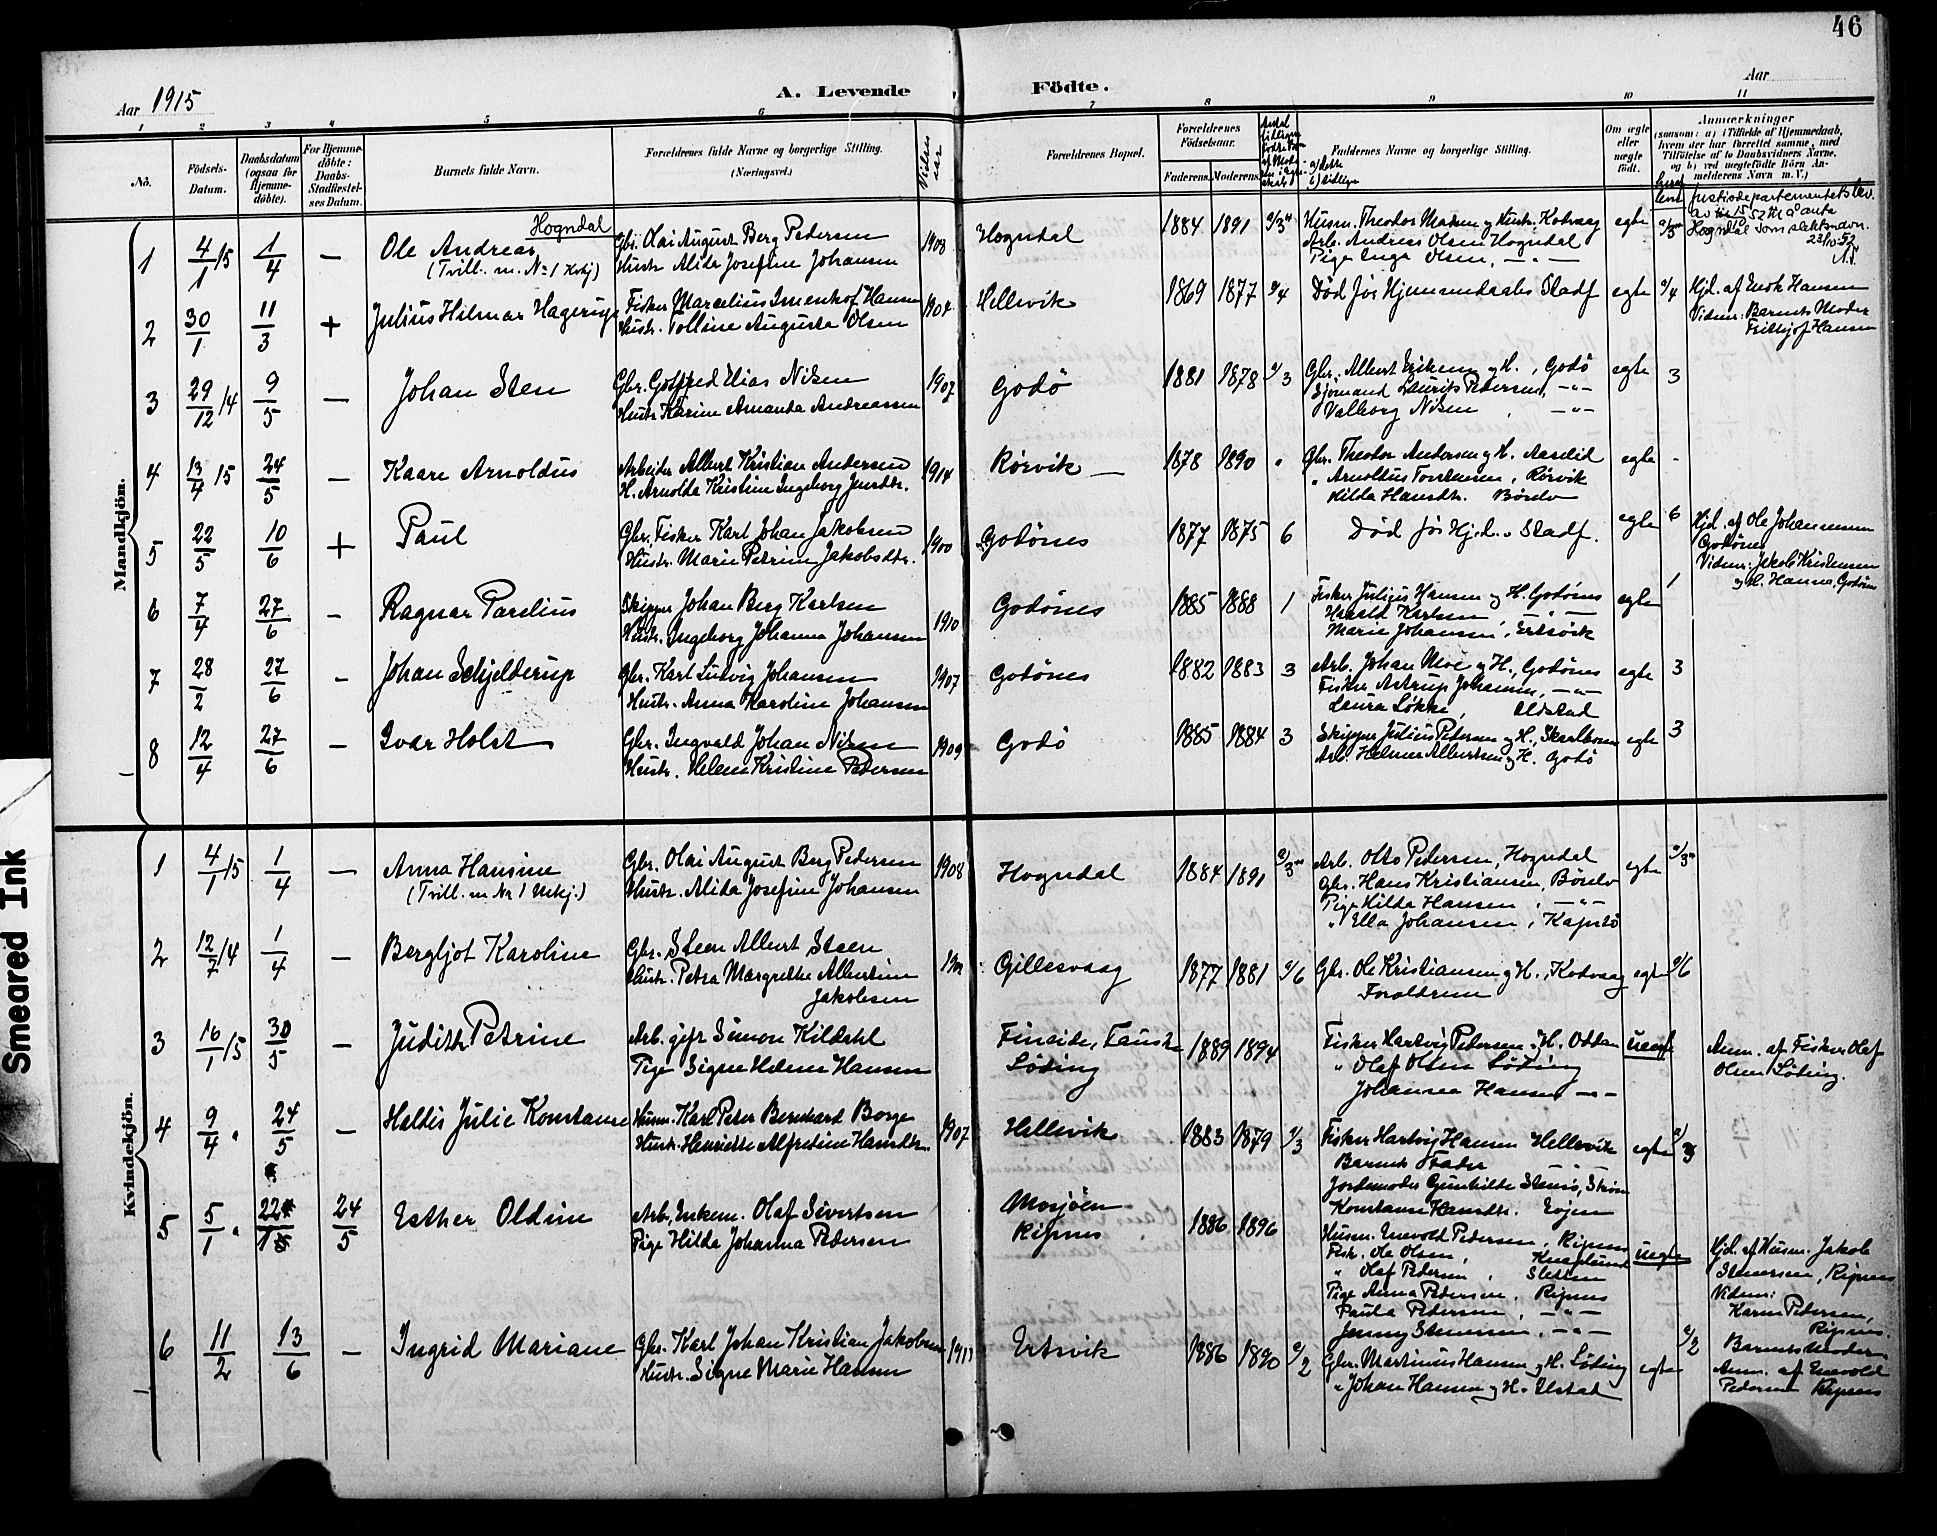 46
Aar 1915
A. Levende Födte.
Aar
1 2 3 4 5 6 7 8 9 10 11
No.
Födsels-Datum.
Daabsdatum (ogsaa för Hjemme-döbte).
For Hjemme-döbte: Daabs-Stadfæstel-ses Datum.
Barnets fulde Navn.
Forældrenes fulde Navne og borgerlige Stilling.
(Næringsvei.)
Vielses aar
Forældrenes Bopæl.
Forældrenes Födselsaar.
Faderens. Moderens.
Faddernes Navne og borgerlige Stilling.
Om ægte eller uægte födt.
Anmærkninger
(saasom: a) i Tilfælde af Hjemmedaab, hvem der har forrettet samme, med Tilföielse af to Daabsvidners Navne, og b) ved uægtefödte Börn An-melderens Navn m. V.)
Mandkjön.
1 4/1 15 1/4 — Ole Andreas Hogndal
(Tvill. m. No 1 Kvkj)
Gbr. Olai August Berg Pedersen
Hustr. Alida Josefine Johansen
1908 Hogndal 1884 1891
Husm. Theodor Madsen og Hustr. Kodvaag
Arb. Andreas Olsen Hogndal
Pige Inga Olsen, — " —
egte
Justisdepartementets bev.
Hogndal som slektsnavn.
2 30/1 11/3 + Julius Hilmar Hagerup
Fisker Marcelius Imenhof Hansen
Hustr. Tolline Auguste Olsen
1904 Hellevik 1869 1877 2/4
Död för Hjemmedaabes Stadf
egte 2/4
Hjd. af Enok Hansen
Vidner: Barnets Moder
Fridtjof Hansen
3 29/12 14 9/5 — Johan Sten
Gbr. Gotfred Elias Nilsen
Hustr. Karine Amanda Andreassen
1907 Godö 1881 1878 2/3
Gbr. Albert Eriksen og H., Godö
Sjömand Laurits Pedersen, — " —
Valborg Nilsen, — " —
egte 3
4 13/4 15 24/5 — Kaare Arnoldus
Arbeider Albert Kristian Andersen
H. Arnolda Kristine Ingeborg Jensdtr.
1914 Rörvik — 1878 1890 "
Gbr. Theodor Andersen og H. Aaselid
" Arnoldus Torstensen, Rörvik
Hilda Hansdtr. Börelv
egte -
5 22/5 10/6 + Paul
Gbr. Fisker Karl Johan Jakobsen
Hustr. Marie Petrine Jakobsdtr.
1900 Godönes 1877 1875 6
Död för Hj.d. " Stadf.
egte 6
Hjd. af Ole Johannessen
Godönes
Vidner: Jakob Kristensen
og H. Hanna, Godönes
6 7/4 27/6 — Ragnar Parelius
Skipper Johan Berg Karlsen
Hustr. Ingeborg Johanna Johansen
1910 Godönes 1885 1888 1
Fisker Julius Hansen og H. Godönes
Harald Karlsen — " —
Marie Johansen, Ertsvik
egte 1
7 28/2 27/6 — Johan Schjelderup
Gbr. Karl Ludvig Johansen
Hustr. Anna Karoline Johansen
1907 Godönes 1882 1883 3
Arb. Johan Moe og H., Godönes
Fisker Astrup Johansen, — " —
Laura Løkke, Alstad
egte 3
8 12/4 27/6 — Ivar Holst
Gbr. Ingvald Johan Nilsen
Hustr. Helene Kristine Pedersen
1909 Godö 1885 1884 3
Skipper Julius Pedersen og H.,
Arb. Helmer Albertsen og H. Godö
egte 3
Kvindekjön.
1 4/1 15 1/4 — Anna Hansine
(Tvill. m. Nr 1 Mkj.)
Gbr. Olai August Berg Pedersen
Hustr. Alida Josefine Johansen
1908 Hogndal 1884 1891
Arb. Otto Pedersen, Hogndal
Gbr. Hans Kristiansen, Börelv
Pige Hilda Hansen, — " —
" Ella Johansen,
egte
2 12/7 14 1/4 — Bergljot Karoline
Gbr. Steen Albert Steen
Hustr. Petra Margrethe Albertine
Jakobsen
Gillesvaag 1877 1881 2/6
Gbr. Ole Kristiansen og H., Kodvaag
Forældrene
egte 2/6
3 16/1 15 30/5 — Judith Petrine
Arb. gift Simon Kildahl
Pige Signe Helene Hansen
Fineide, Fauske
Löding
1889 1894
Fisker Hartvig Pedersen " H. Oddan
" Olaf Olsen Löding
Johanna Hansen, — " —
uægte
Anm. af Fisker Olaf
Olsen Löding.
4 9/4 " 24/5 — Haldis Julie Konstanse
Husm. Karl Peter Bernhard Borge
Hustr. Henriette Alfredine Hansdtr.
1907 Hellevik 1883 1879 2/3
Fisker Hartvig Hansen Hellevik
Barnets Fader — " —
Jordemoder Gunhilde
Konstanse Hansdtr.
egte 2/3
5 5/1 " 24/5 Esther Oldine
Arb., Enkem. Olaf Sivertsen
Pige Hilda Johanna Pedersen
Mosjöen
Ripnes
1886 1896
Husm. Enevold Pedersen, Ripnes
Fisk. Ole Olsen, Knaplund
" Olaf Pedersen, Sletten
Pige Anna Pedersen, Ripnes
Paula Pedersen, — " —
Jenny Stenersen, — " —
uegte
Hjd. af Husm. Jakob
Stenersen, Ripnes
Vidner:
Karen Pedersen,
Ripnes.
Barnets Moder.
Anm. af Enevold
Pedersen Ripnes
6 11/2 13/6 — Ingrid Mariane
Gbr. Karl Johan Kristian Jakobsen
Hustr. Signe Marie Hansen
Ertsvik 1886 1890 2/2
Gbr. Martinus Hansen og H. Löding
" Johan Hansen og H. Alstad
egte 2/2
Smeared Ink